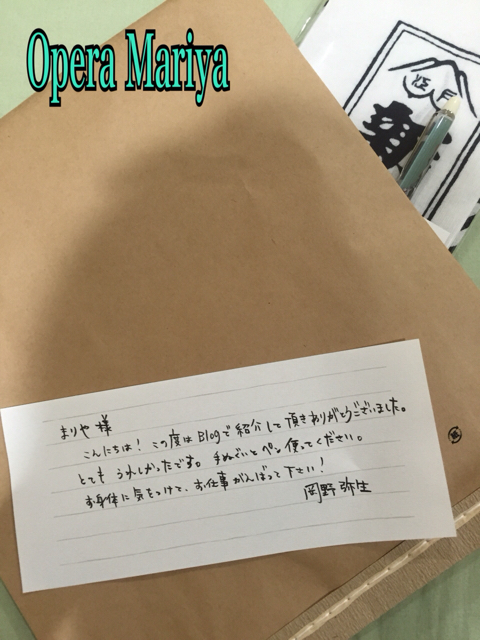 Opera Mariya
江戸
まりや 様
こんにちは！この度は Blogで紹介して頂きありがとうございました。
とても うれしかったです。手ぬぐいとペン 使ってください。
お身体に気をつけて、お仕事がんばって下さい！
岡野 弥生